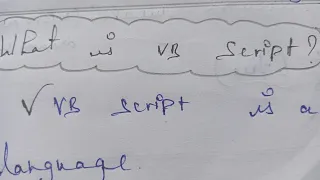 What is VB Script?
✓ VB Script is a
language.